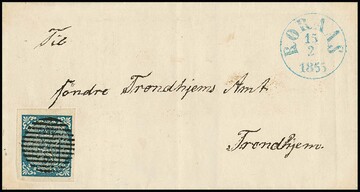 Til
RØRAAS
15
2
1855
Søndre Trondhjems Amt
Trondhjem.